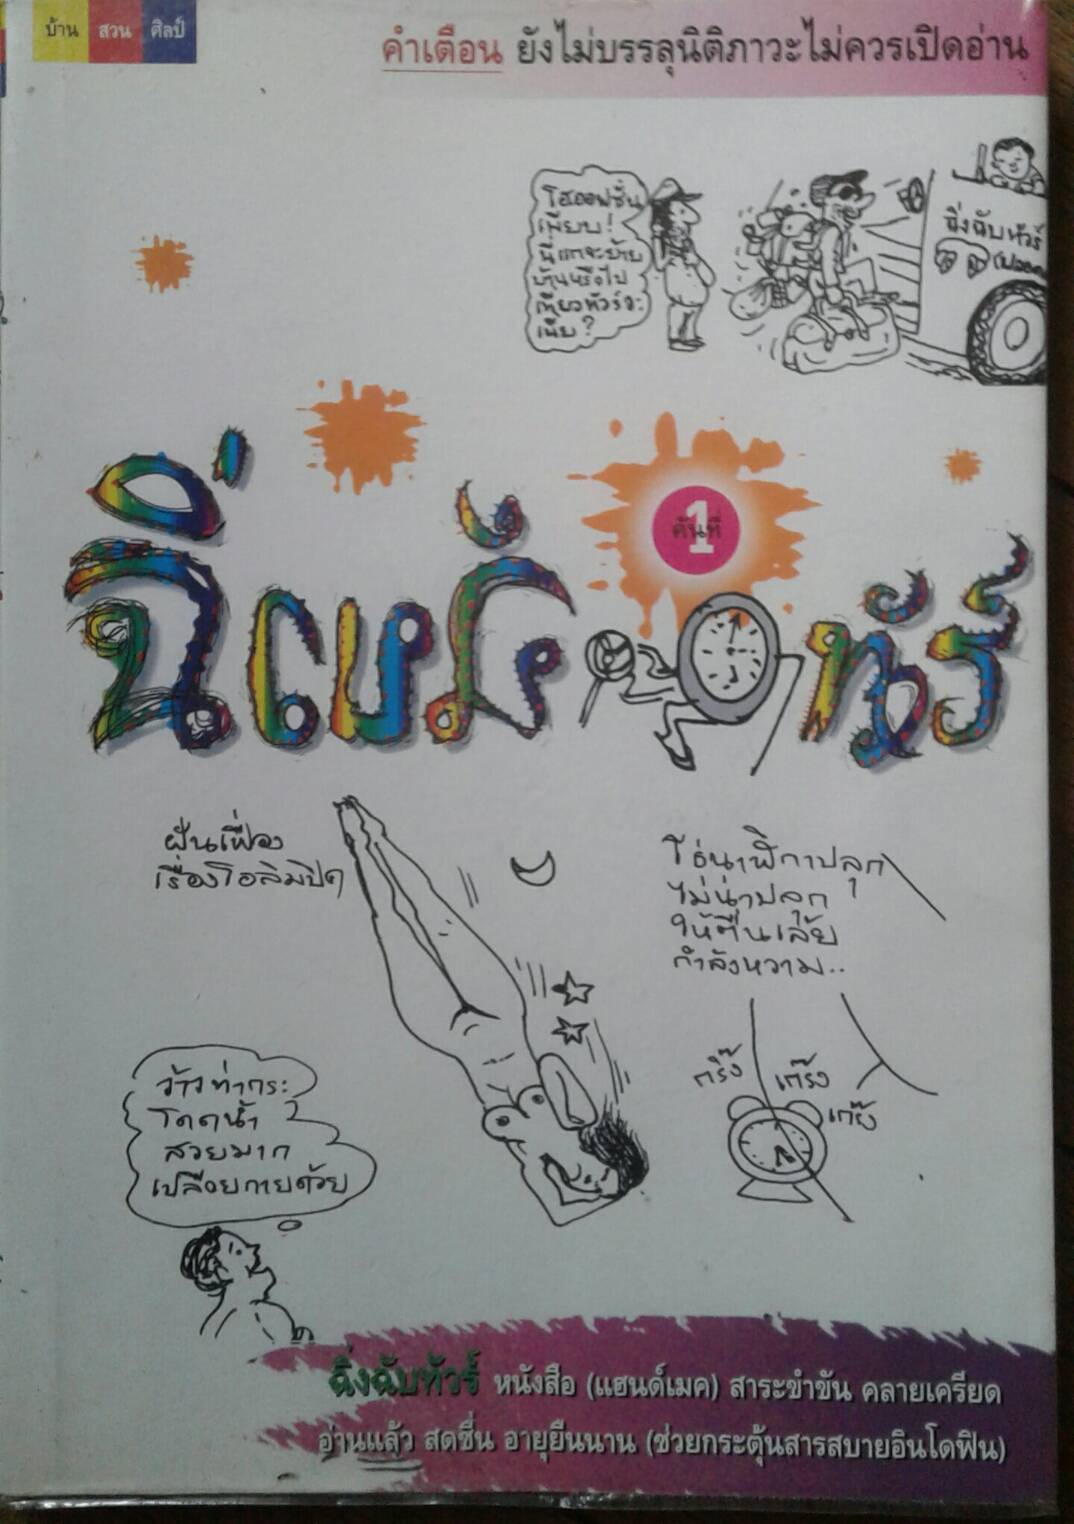 บ้าน สวน ศิลป์
คำเตือน ยังไม่บรรลุนิติภาวะไม่ควรเปิดอ่าน
โฮออฟชั่น
เพียบ!
นี่แกจะย้าย
บ้านหรือไป
เที่ยวทัวร์จ๊ะ
เนี่ย?
ฉิ่งฉับทัวร์
คันที่ 1
ฉิ่งฉับทัวร์
ฝันเฟื่อง
เรื่องโอลิมปิก
โอ่นาฬิกาปลุก
ไม่น่าปลุก
ให้ตื่นเล้ย
กำลังหวาม..
กริ๊ง
เก๊ร้ง
เก๊ง
ว้าวท่ากระ
โดดน้ำ
สวยมาก
เปลือยกายด้วย
ฉิ่งฉับทัวร์ หนังสือ (แฮนด์เมค) สาระขำขัน คลายเครียด
อ่านแล้ว สดชื่น อายุยืนนาน (ช่วยกระตุ้นสารสบายอินโดฟิน)